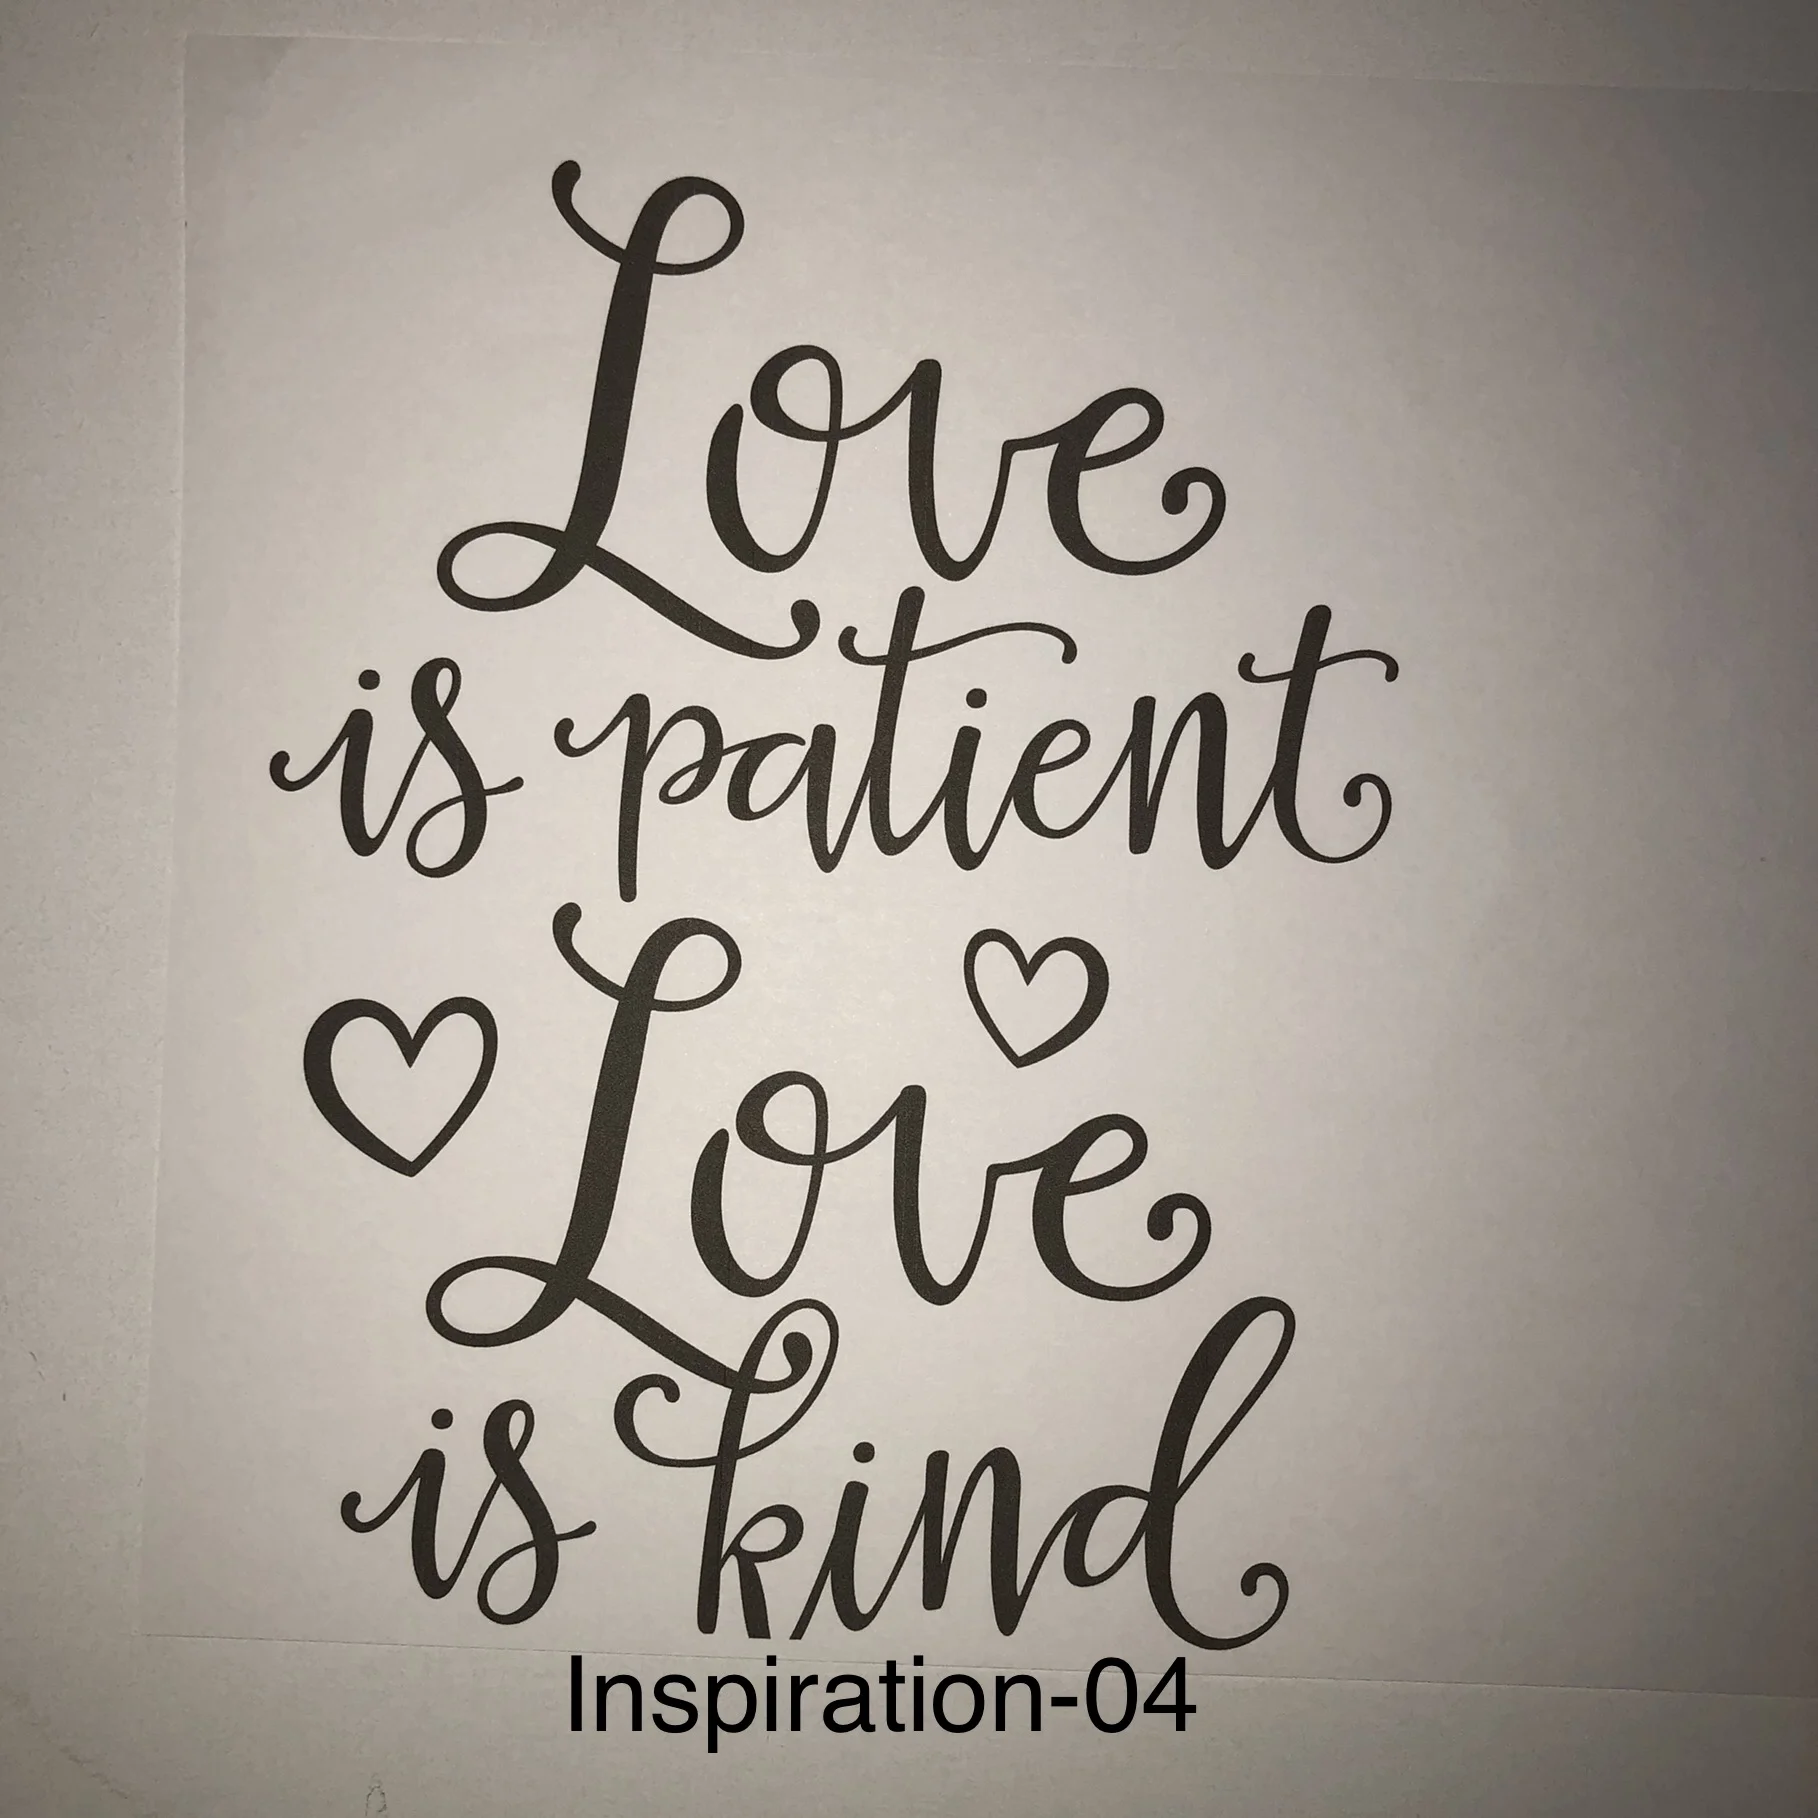 Love
is patient
Love
is kind
Inspiration-04